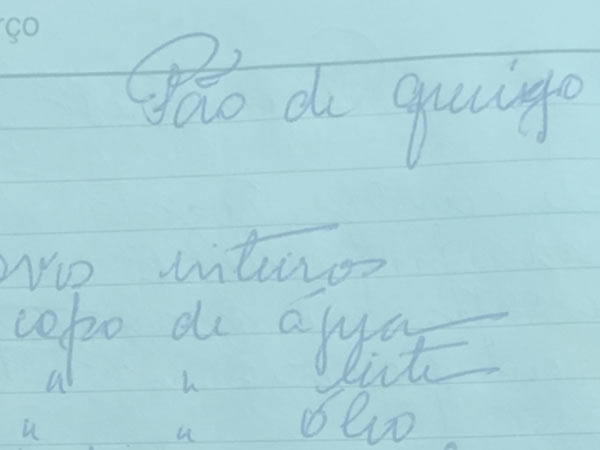 rço
Pão de queijo
ovos inteiros
copo de água
" " leite
" " óleo